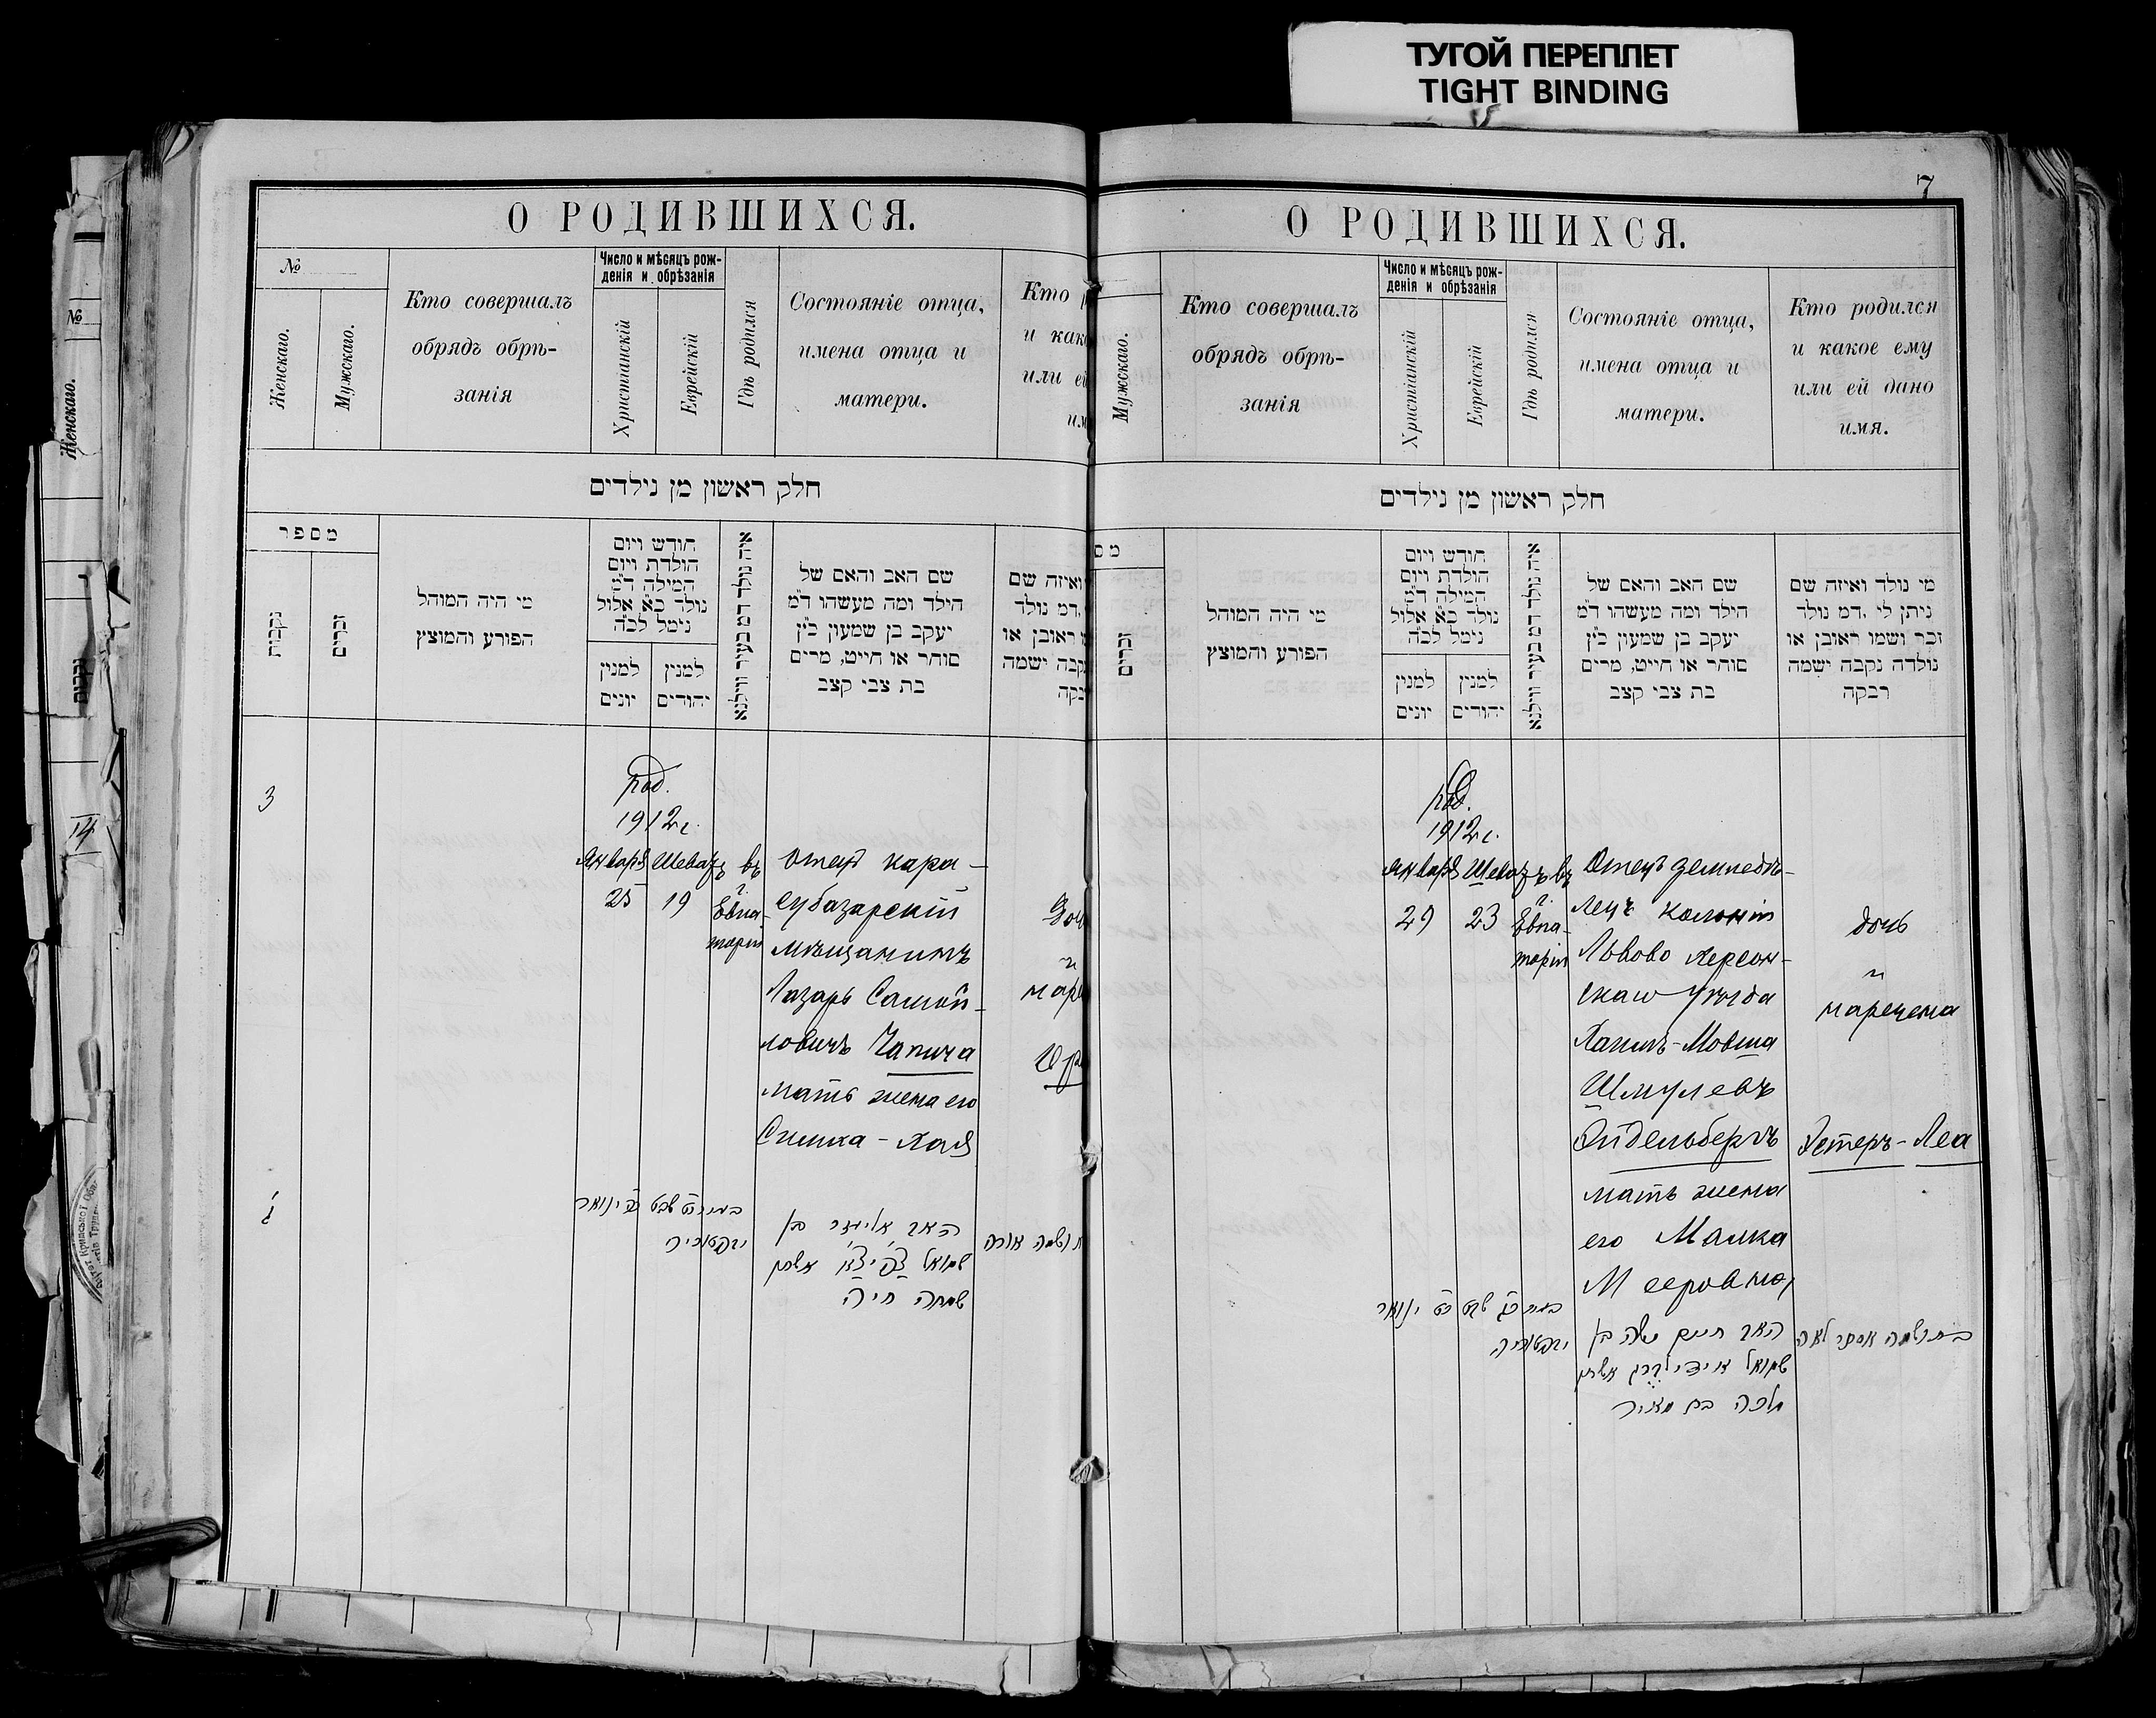 ТУГОЙ ПЕРЕПЛЕТ
TIGHT BINDING
О РОДИВШИХСЯ.
№
Женскаго.
Мужскаго.
Кто совершалъ
обрядъ обрѣ-
занія
Число и мѣсяцъ рож-
денія и обрѣзанія
Христіанскій
Еврейскій
Гдѣ родился
Состояніе отца,
имена отца и
матери.
Кто
и
или
חלק ראשון מן נילדים
מספר
נקבות
זכרים
מי היה המוהל
הפורע והמוצץ
חודש ויום
הולדת ויום
המילה ד״מ
נולד כ״א אלול
נימל לכ״ה
למנין
יונים
למנין
יהודים
איה נולד דמ בעיר ווילנא
שם האב והאם של
הילד ומה מעשהו ד״מ
יעקב בן שמעון כ״ץ
סוחר או חייט, מרים
בת צבי קצב
ואיזה שם
דמ נולד
ראובן או
נקבה ישמה
3
род.
1912 г.
Января Шеватъ въ
25 19 г. Евпа-
торіи
Отецъ кара-
субазарскій
мѣщанинъ
Лазарь Самой-
ловичъ Чапича
мать жена его
Симка-Хая
האב אליעזר בן
שמואל אשתו
שמחה חיה
7
О РОДИВШИХСЯ.
Мужскаго.
Кто совершалъ
обрядъ обрѣ-
занія
Число и мѣсяцъ рож-
денія и обрѣзанія
Христіанскій
Еврейскій
Гдѣ родился
Состояніе отца,
имена отца и
матери.
Кто родился
и какое ему
или ей дано
имя.
חלק ראשון מן נילדים
מס
זכרים
מי היה המוהל
הפורע והמוצץ
חודש ויום
הולדת ויום
המילה ד״מ
נולד כ״א אלול
נימל לכ״ה
למנין
יונים
למנין
יהודים
איה נולד דמ בעיר ווילנא
שם האב והאם של
הילד ומה מעשהו ד״מ
יעקב בן שמעון כ״ץ
סוחר או חייט, מרים
בת צבי קצב
מי נולד ואיזה שם
ניתן לי ,דמ נולד
זכר ושמו ראובן או
נולדה נקבה ישמה
רבקה
род.
1912 г.
Января Шеватъ въ
29 23 г. Евпа-
торіи
Отецъ землевдѣ-
лецъ колоніи
Львово Херсон-
скаго уѣзда
Хаимъ-Мовша
Шмулевъ
Эйдельбергъ
мать жена
его Малка
Мееровна
дочь
и
наречена
Эстеръ-Леа
האב חיים משה בן
שמואל איידילברג אשתו
מלכה בת מאיר
בת ושמה אסתר לאה